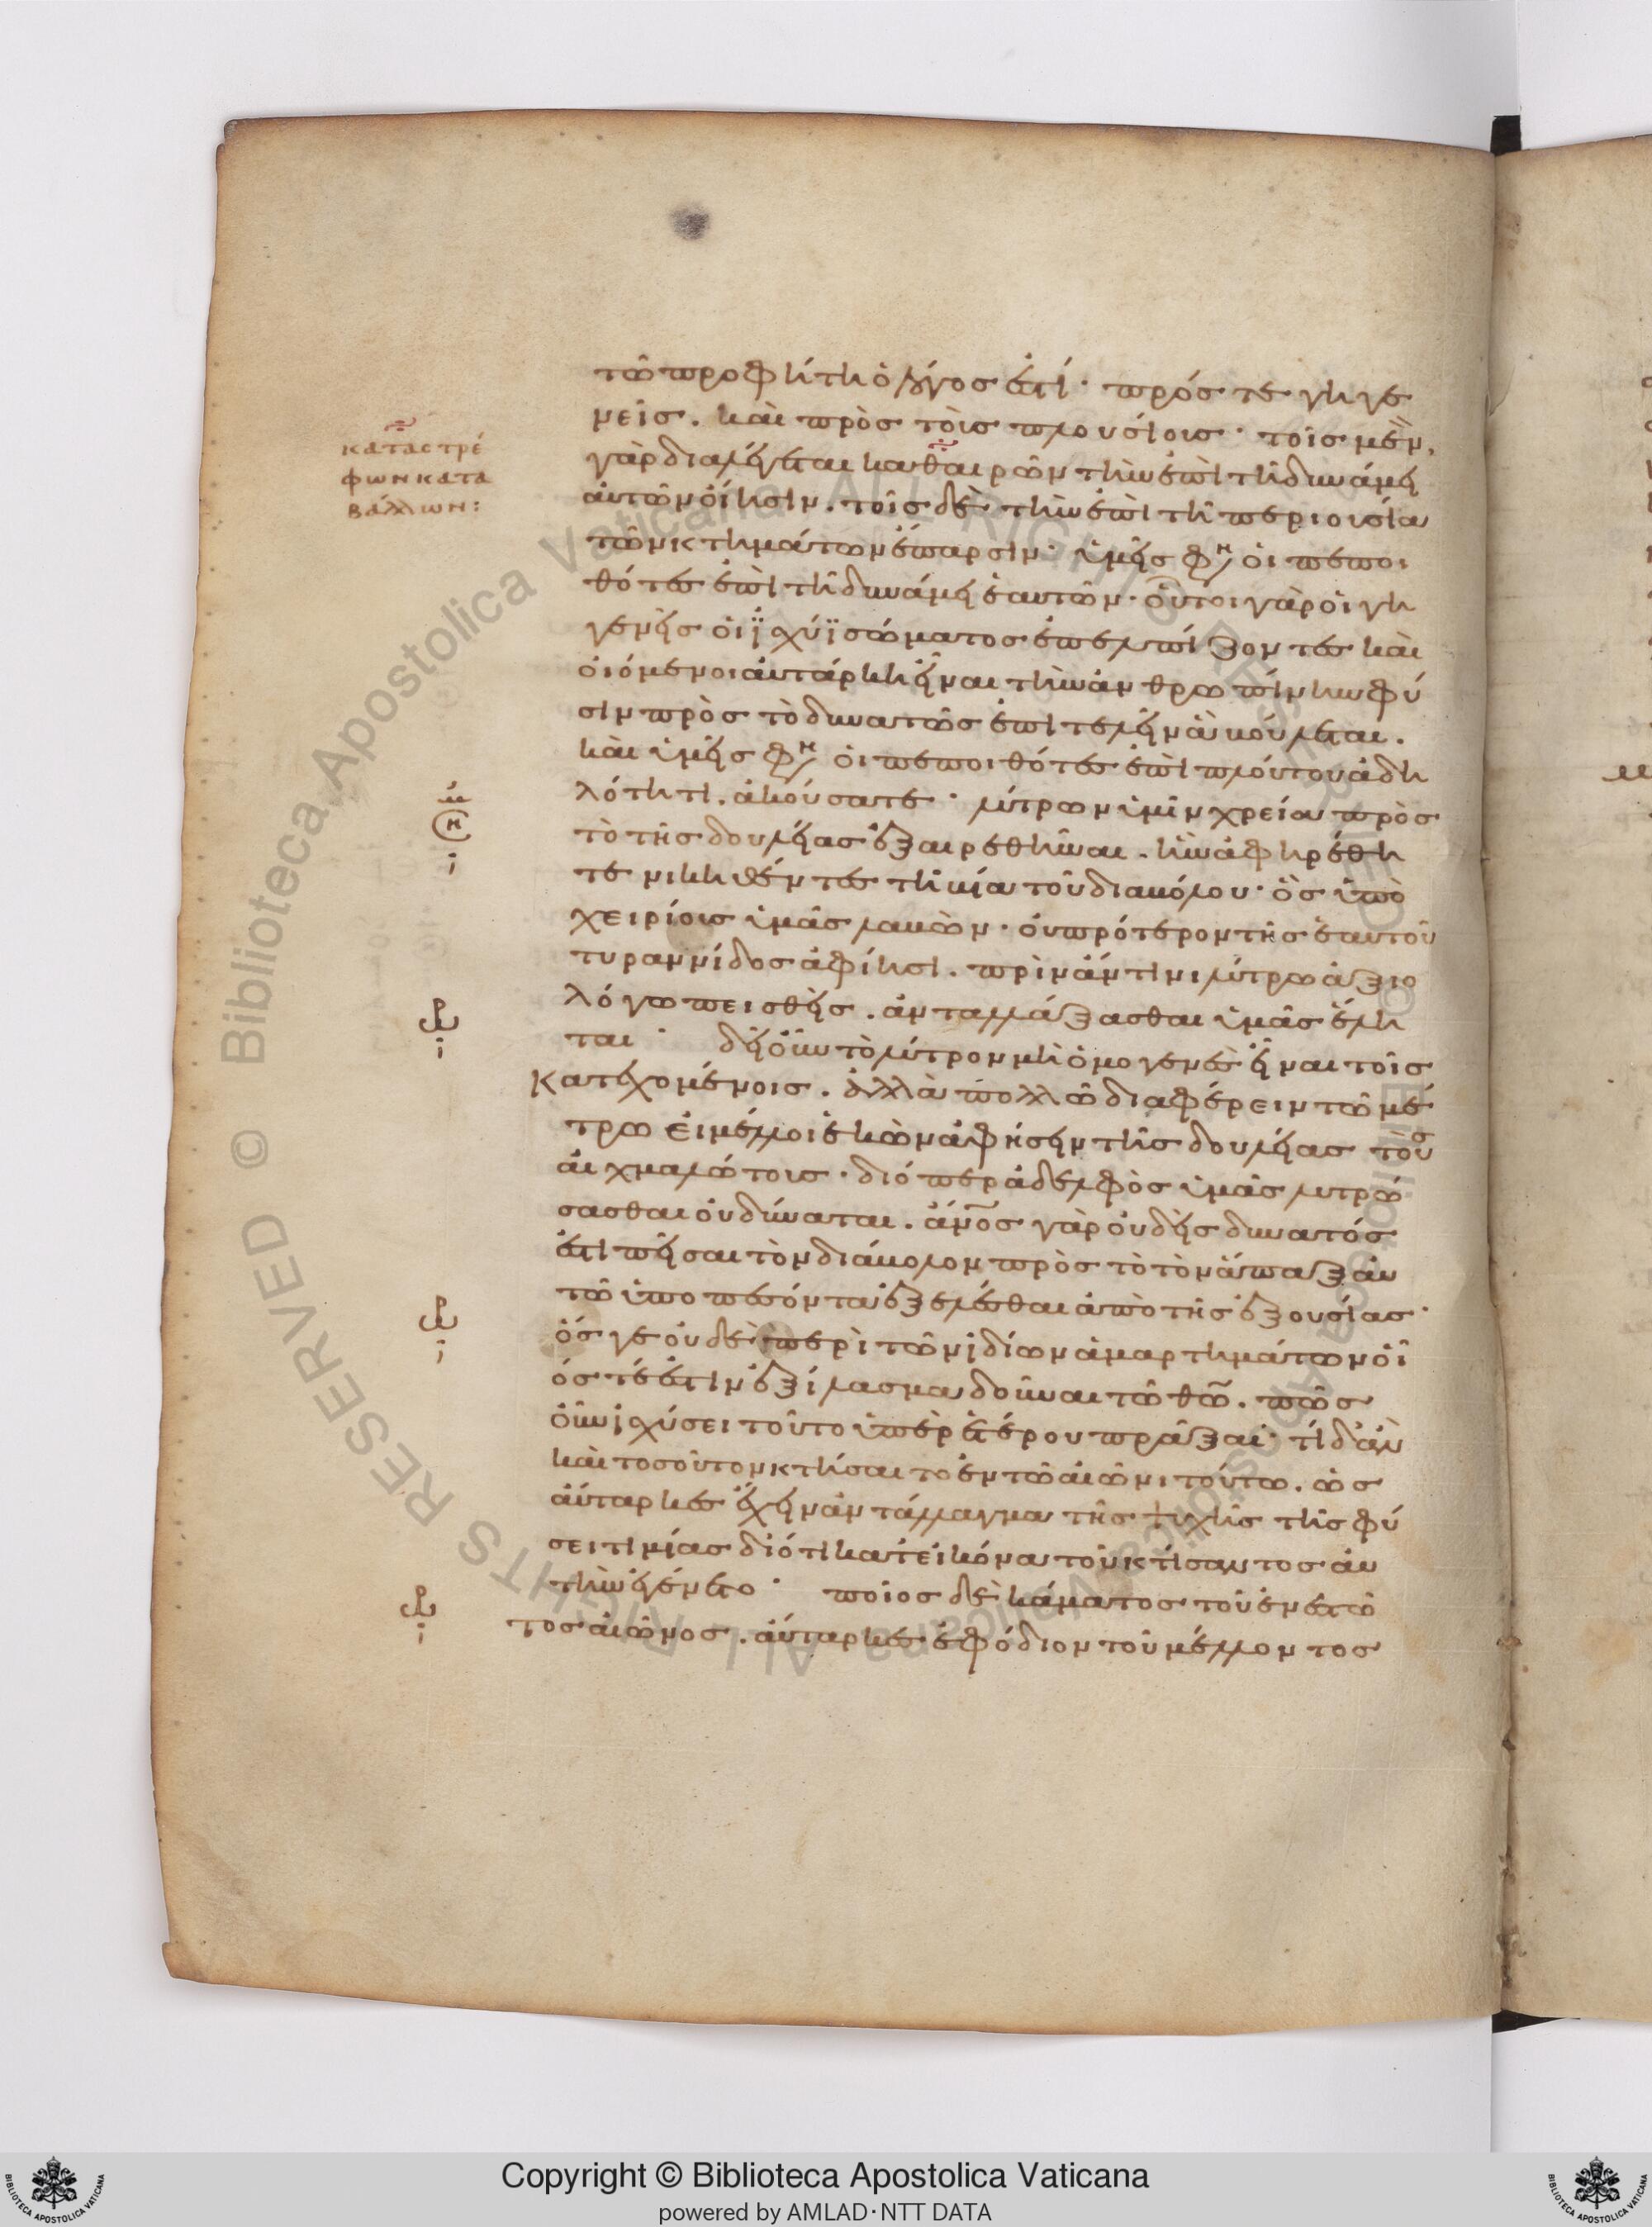 τῶ προφήτη ὁ λόγος ἐστί· πρός τε γηγε
νεῖς. καὶ πρὸς τοὺς πλουσίους· τοῖς μὲν,
γὰρ διαλέγεται καθαιρῶν τὴν ἐπὶ τῆ δυνάμει
αὐτῶν οἴησιν. τοῖς δὲ τὴν ἐπὶ τῆ περιουσία
τῶν κτημάτων ἔπαρσιν· ὑμεῖς φη οἱ πεποι
θότες ἐπὶ τῆ δυνάμει ἑαυτῶν· οὗτοι γὰρ οἱ γη
γενεῖς οἱ ἰσχύϊ σώματος ἐπελπίζοντες καὶ
οἰόμενοι αὐτάρκη εἶναι τὴν ἀνθρωπίνην φύ
σιν πρὸς τὸ δυνατῶς ἐπιτελεῖν ἃ βούλεται.
καὶ ὑμεῖς φη οἱ πεποιθότες ἐπὶ πλούτου ἀδη
λότητι. ἀκούσατε· λύτρων ὑμῖν χρεία πρὸς
τὸ τῆς δουλείας ἐξαιρεθῆναι. ἣν ἀφηρέθη
τε νικηθέντες τῆ βία τοῦ διαβόλου· ὃς ὑπο
χειρίους ὑμᾶς λαβὼν· οὐ πρότερον τῆς ἑαυτοῦ
τυραννίδος ἀφίησι. πρὶν ἄν τινι λύτρω ἀξιο
λόγω πεισθεὶς. ἀνταλλάξασθαι ὑμᾶς ἕλη
ται· δεῖ οὖν τὸ λύτρον μὴ ὁμογενὲς εἶναι τοῖς
κατεχομένοις. ἀλλὰ πολλῶ διαφέρειν τῶ μέ
τρω εἰ μέλλοι ἑκὼν ἀφήσειν τῆς δουλείας τοὺς
αἰχμαλώτους· διόπερ ἀδελφὸς ὑμᾶς λυτρώ
σασθαι οὐ δύναται. ἄνος γὰρ οὐδεὶς δυνατός
ἐστι πεῖσαι τὸν διάβολον πρὸς τὸ τὸν ἅπαξ αὐ
τῶ ὑποπεσόντα ἐξελέσθαι ἀπὸ τῆς ἐξουσίας·
ὅς γε οὐδὲ περὶ τῶν ἰδίων ἁμαρτημάτων οἷ
ός τέ ἐστιν ἐξίλασμα δοῦναι τῶ θω. πῶς
οὖν ἰσχύσει τοῦτο ὑπὲρ ἑτέρου πρᾶξαι· τί δ' ἂν
καὶ τοσοῦτον κτήσαιτο ἐν τῶ αἰῶνι τούτω. ὡς
αὔταρκες ἔχειν ἀντάλλαγμα τῆς ψυχῆς τῆς φύ
σει τιμίας διότι κατ' εἰκόνα τοῦ κτίσαντος αὐ
τὴν ἐγένετο· ποῖος δὲ κάματος τοῦ ἐνεστῶ
τος αἰῶνος. αὔταρκες ἐφόδιον τοῦ μέλλοντος
καταστρέ
φων κατα
βάλλων:
Copyright © Biblioteca Apostolica Vaticana
powered by AMLAD·NTT DATA
© Biblioteca Apostolica Vaticana ALL RIGHTS RESERVED